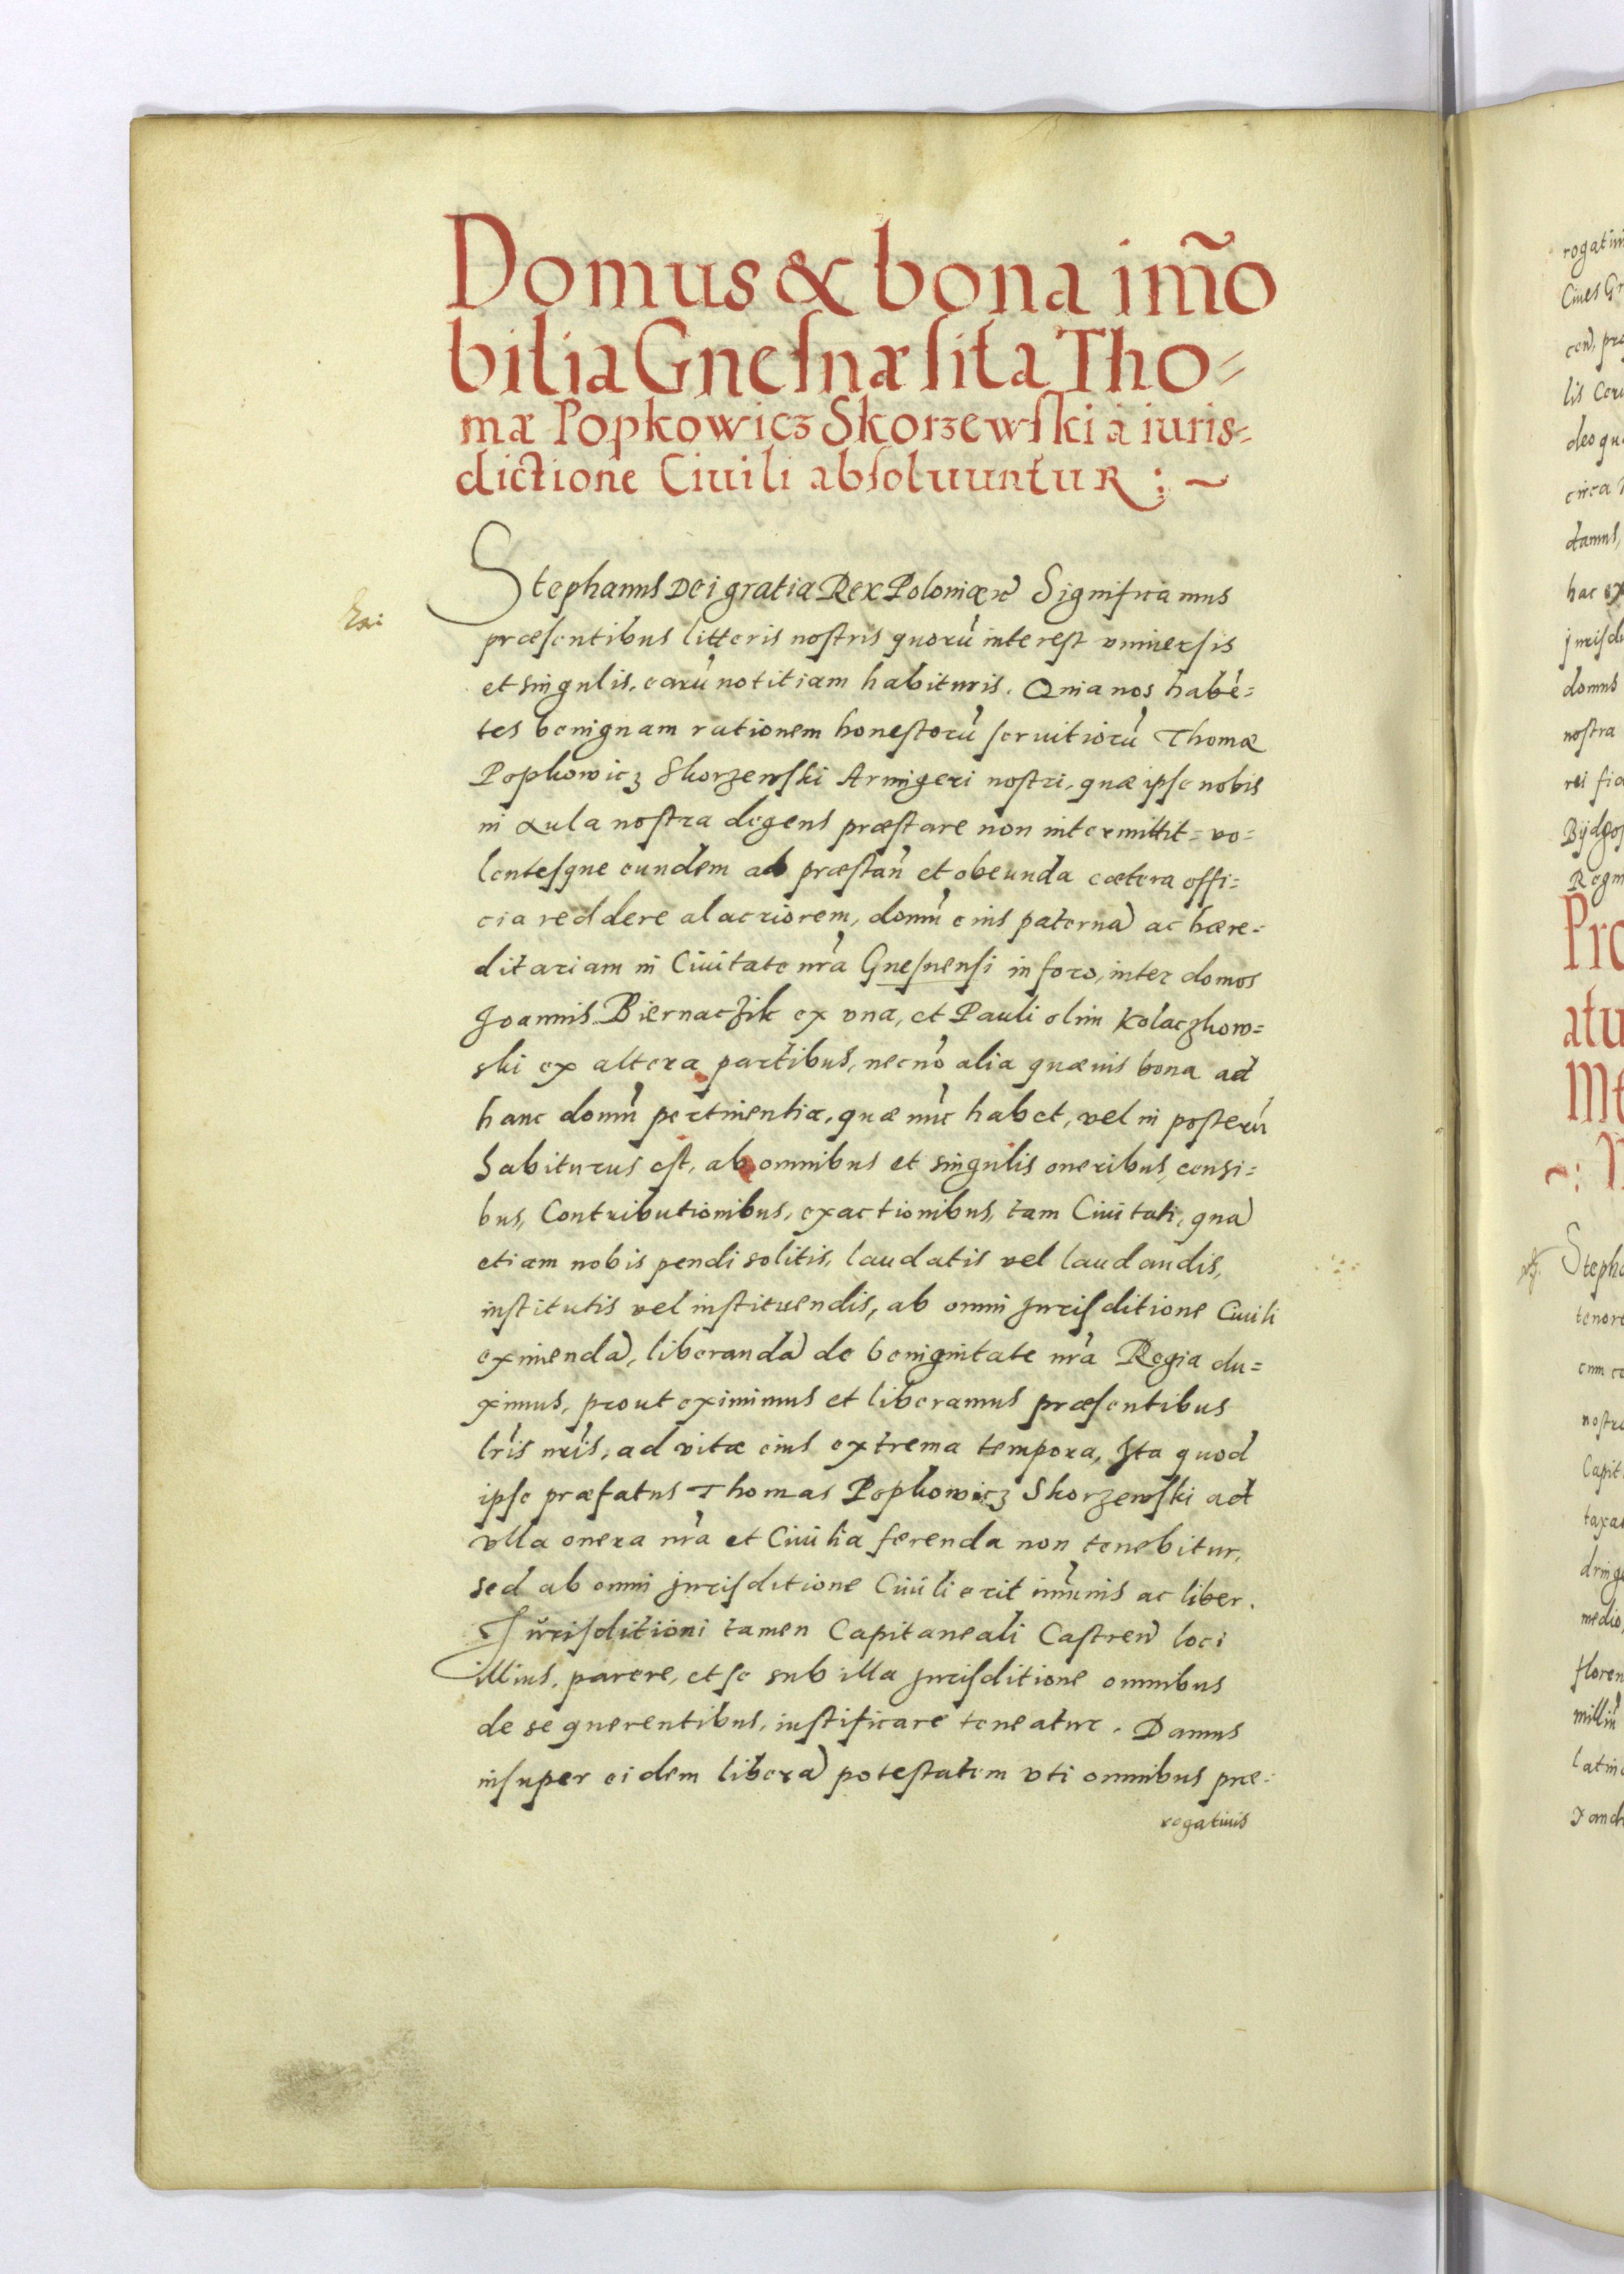 Domus & bona im̃o
bilia Gneſnæ ſita Tho=
mæ Popkowicz Skorzewſki a iuris=
dictione Ciuili abſoluuntuR : ~
Stephanus Dei gratia Rex Poloniæ &c Significamus
præſentibus litteris noſtris quorū intereſt vniuerſis
et singulis, earū notitiam habituris. Quia nos habē=
tes benignam rationem honeſtorū ſeruitiorū Thomæ
Popkowicz Skorzewſki Armigeri noſtri, quæ ipſe nobis
in Aula noſtra degens præſtare non intermittit= vo=
lenteſque eundem ad præſtan̄ et obeunda cætera offi=
cia reddere alacriorem, domū eius paternā ac hære=
ditariam in Ciuitate nr̄a Gneſnenſi in foro, inter domos
Joannis Biernaczik ex vna, et Pauli olim Kolaczkow=
ski ex altera partibus, necnō alia quæuis bona ad
hanc domū pertinentia, quæ nūc habet, vel in poſterū
habiturus eſt, ab omnibus et singulis oneribus, censi=
bus, Contributionibus, exactionibus, tam Ciuitati, quā
etiam nobis pendi solitis, laudatis vel laudandis,
inſtitutis vel inſtituendis, ab omni juriſditione Ciuili
eximendā, liberandā de benignitate nr̄a Regia du=
ximus, prout eximimus et liberamus præſentibus
lr̄is nr̄is, ad vitæ eius extrema tempora, Ita quod
ipſe præfatus Thomas Popkowicz Skorzewſki ad
vlla onera nr̄a et Ciuilia ferenda non tenebitur,
sed ab omni juriſditione Ciuili erit im̄unis ac liber.
Juriſditioni tamen Capitaneali Caſtren̄ loci
illius, parere, et ſe sub illa juriſditione omnibus
de se querentibus, iuſtificare teneatur. Damus
inſuper eidem liberā poteſtatem vti omnibus præ=
rogatiuis
rogatiui
Ciues Gn
lis
deo qu
circa
damus,
hac ex
juriſdi
domus
noſtra
rei
Bydgoſ
Regni
Pro
atu
Me
Stepha
tenore
cum
noſtr
Capit
taxa
medio,
floren
milliū
latin